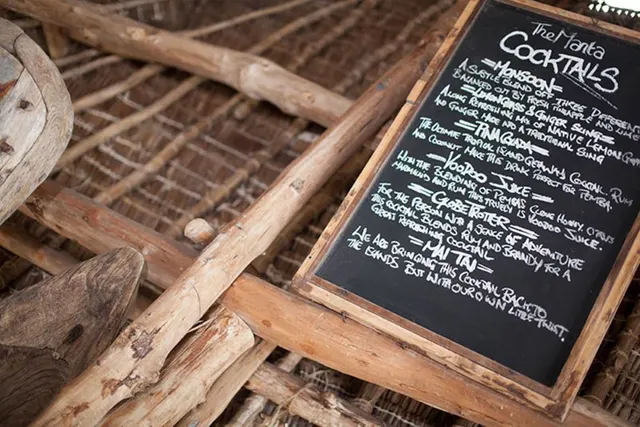 The Manta
Cocktails
=Monsoon=
A Subtle Blend of Three Different
Balanced out by Fresh Pineapple and Lime
=Lemongrass & Ginger Sling=
A Long Refreshing Mix of Native Lemon Grass
and Ginger Made into a Traditional Sling
The Ultimate Tropical Island Getaway Cocktail, Rum
and Coconut Make this Drink Perfect for Pemba
=Voodoo Juice=
With the Blending of Pembas Clove Honey, Citrus
and Rum this Truely is Voodoo Juice.
=Globetrotter=
For the Person with a Sence of Adventure
this Cocktail Blends Rum and Brandy for a
Great Refreshing Cocktail
=Mai Tai=
We Are Bringing this Cocktail Back to
the Islands But with our own Little Twist.